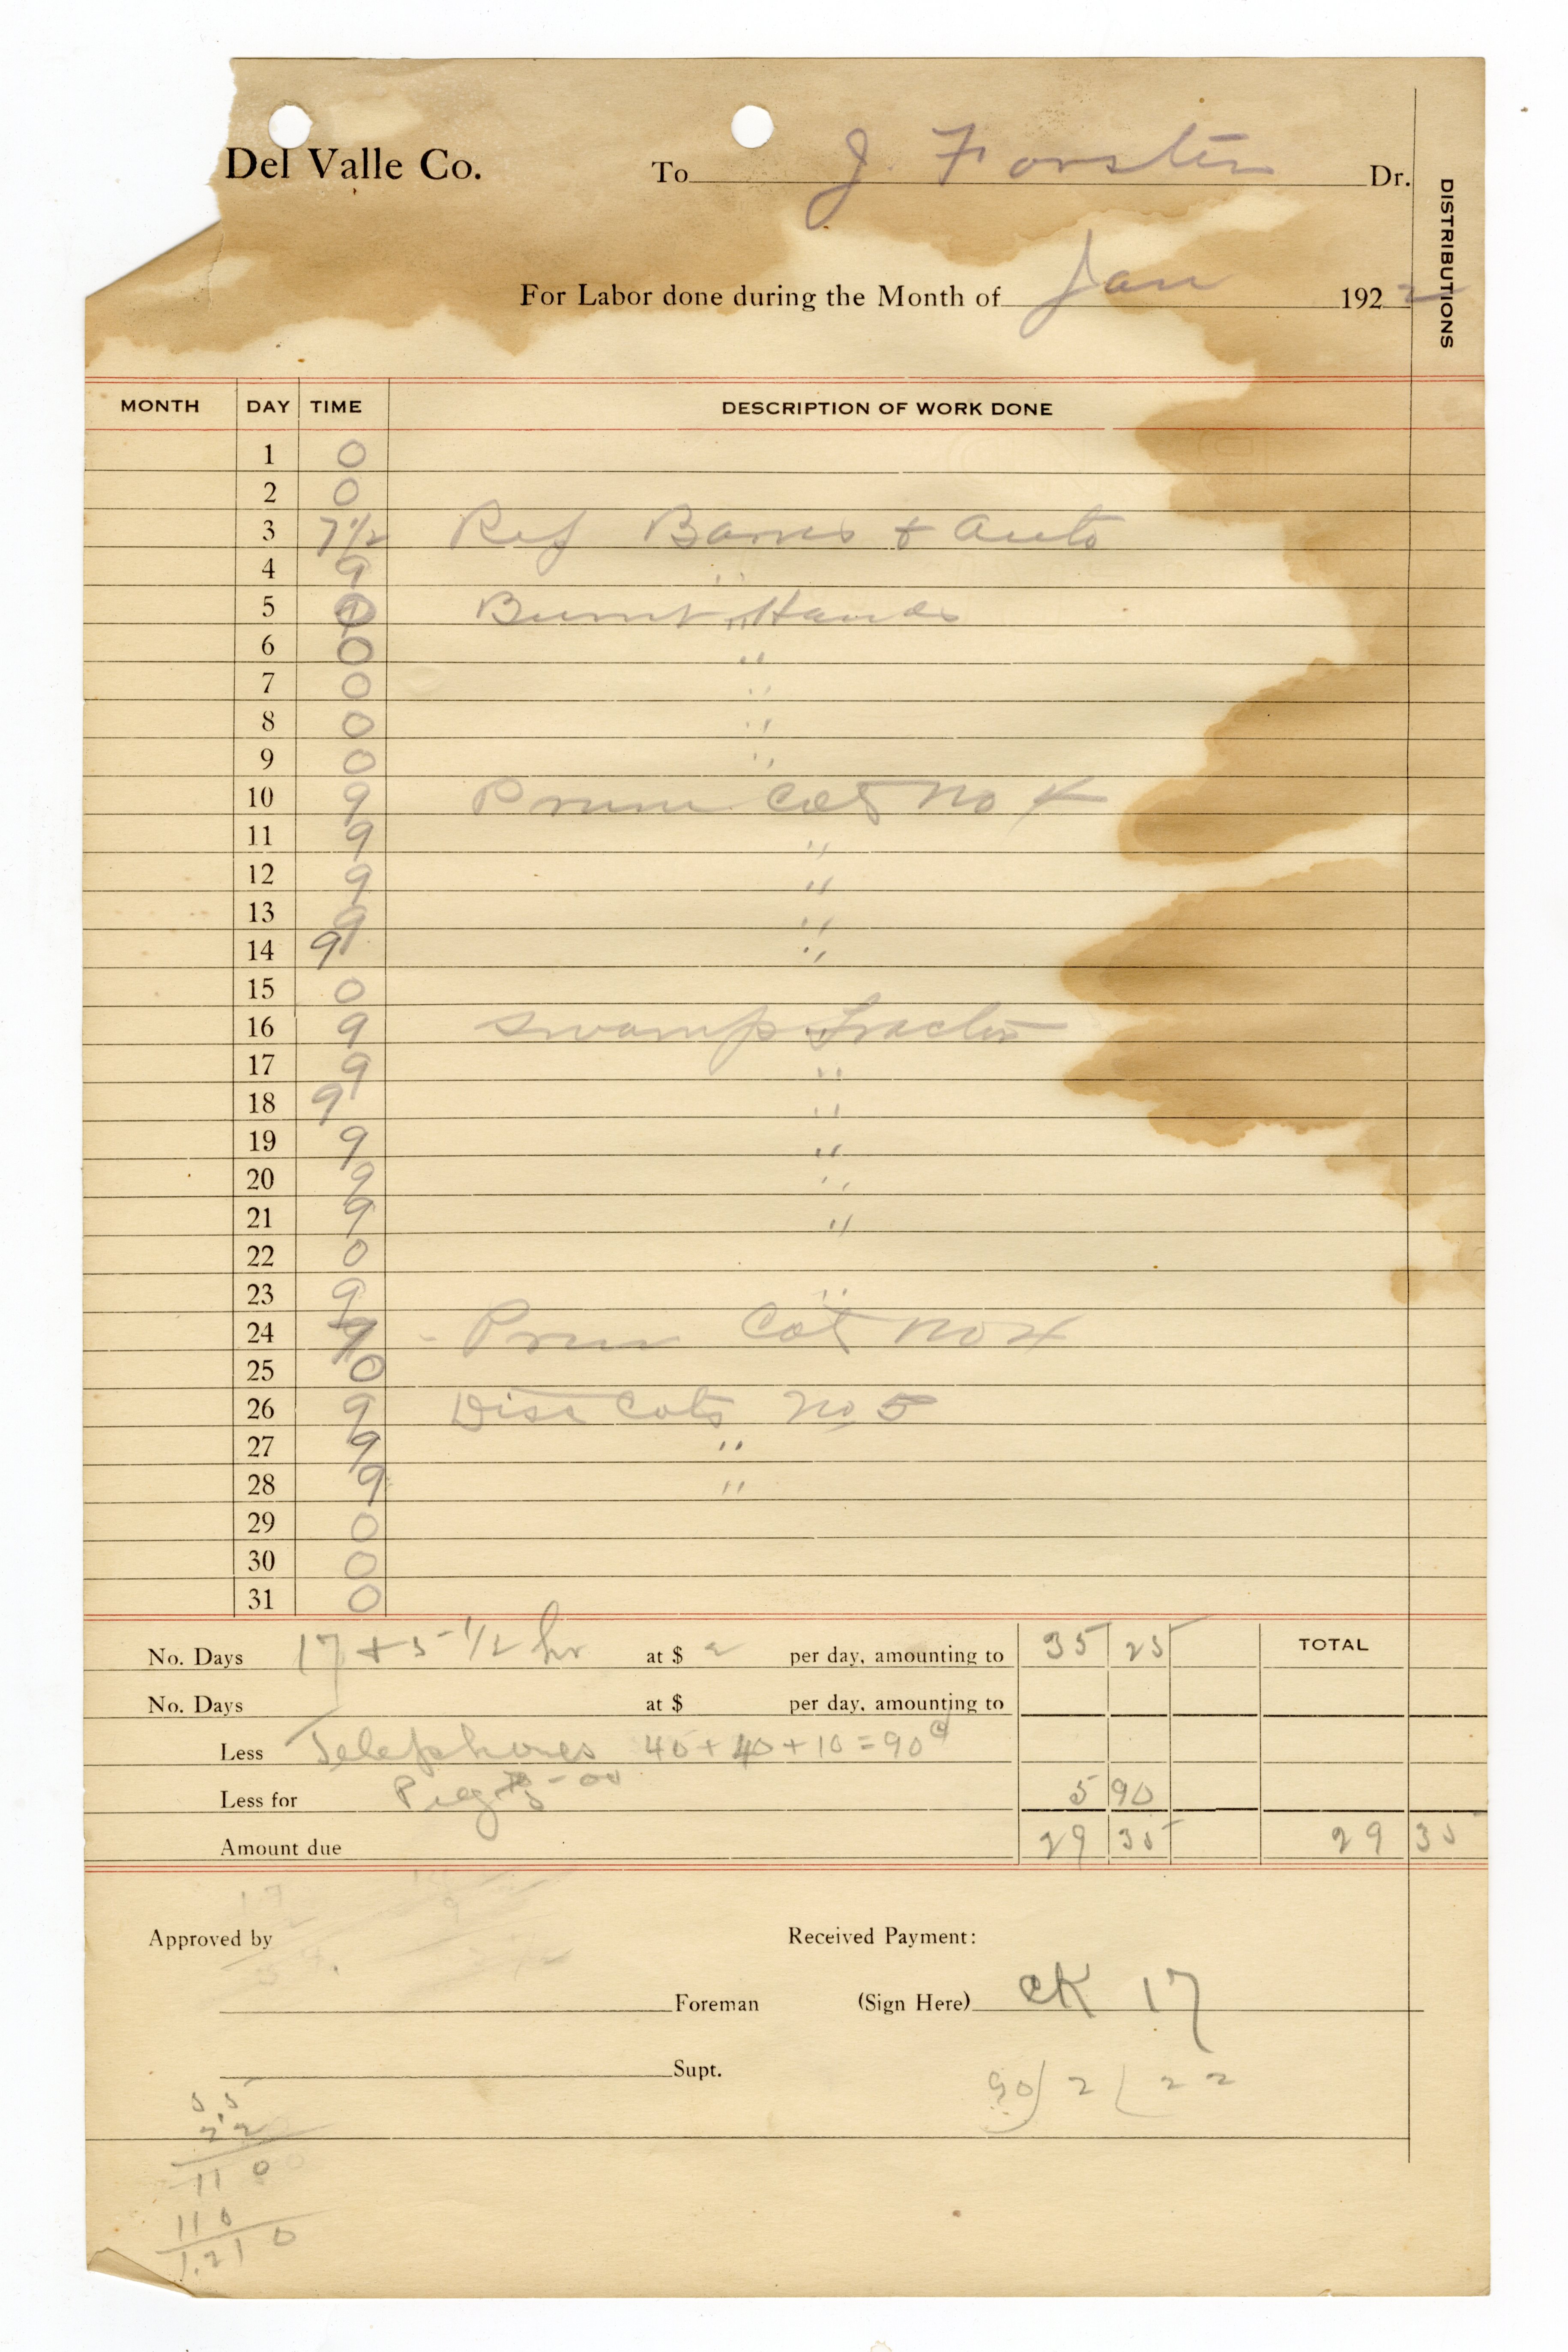 Del Valle Co. To J. Forster Dr.
DISTRIBUTIONS
For Labor done during the Month of Jan 1922
MONTH DAY TIME DESCRIPTION OF WORK DONE
1 0
2 0
3 7 1/2 Rep Barns + Auto
4 9 "
5 0 Burnt Hands
6 0 "
7 0 "
8 0 "
9 0 "
10 9 Prune Cot No 4
11 9 "
12 9 "
13 9 "
14 9 "
15 0
16 9 Swamp Tractor
17 9 "
18 9 "
19 9 "
20 9 "
21 9 "
22 0
23 9 "
24 9 Prun Cot No 4
25 0
26 9 Disc Cots No 5
27 9 "
28 9 "
29 0
30 0
31 0
No. Days 17 + 5 1/2 hr at $ 2 per day, amounting to 35 25 TOTAL
No. Days at $ per day, amounting to
Less Telephones 40 + 40 + 10 = 90¢
Less for Pig 5-00 5 90
Amount due 29 35 29 35
Approved by Received Payment:
Foreman (Sign Here) CK 17
Supt.
90) 2 ( 22
5.5
22
11 0
11 0
1.21 0